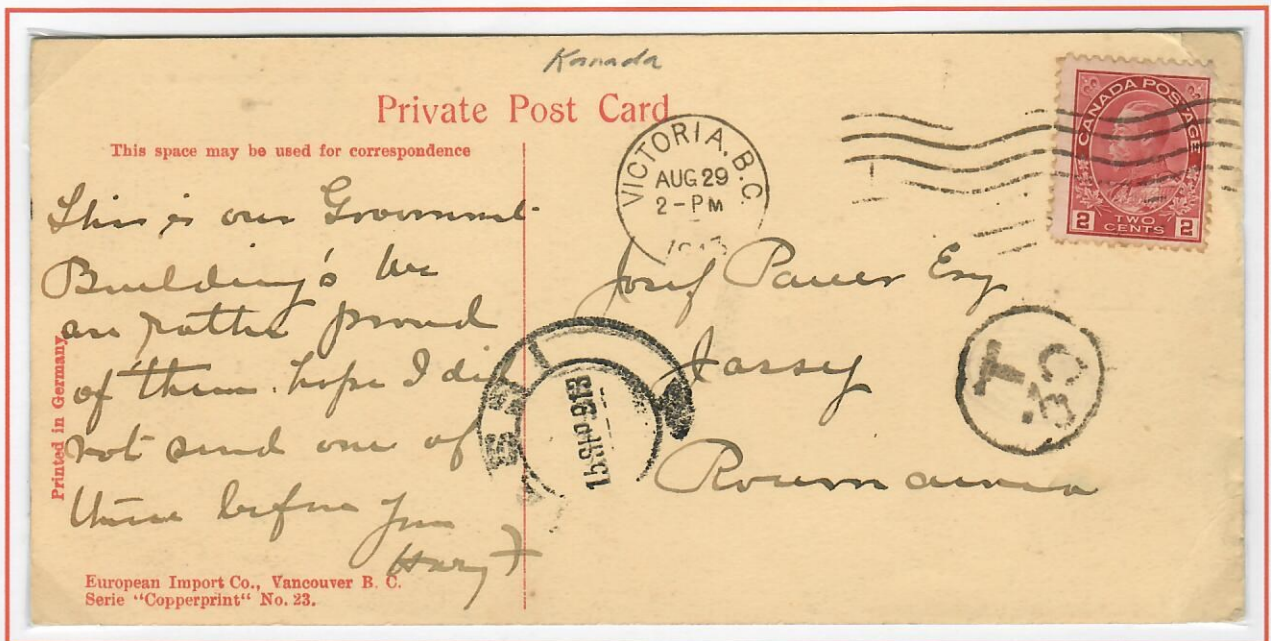 Kanada
Private Post Card
This space may be used for correspondence
This is our Government
Building's We
are rather proud
of them. hope I did
not send one of
these before
Harry F
Printed in Germany
European Import Co., Vancouver B. C.
Serie "Copperprint" No. 23.
VICTORIA, B.C.
AUG 29
2-PM
CANADA POSTAGE
2 TWO CENTS 2
Josef Pauer Esq
Jassy
Roumania
15 SEP 913
T
30